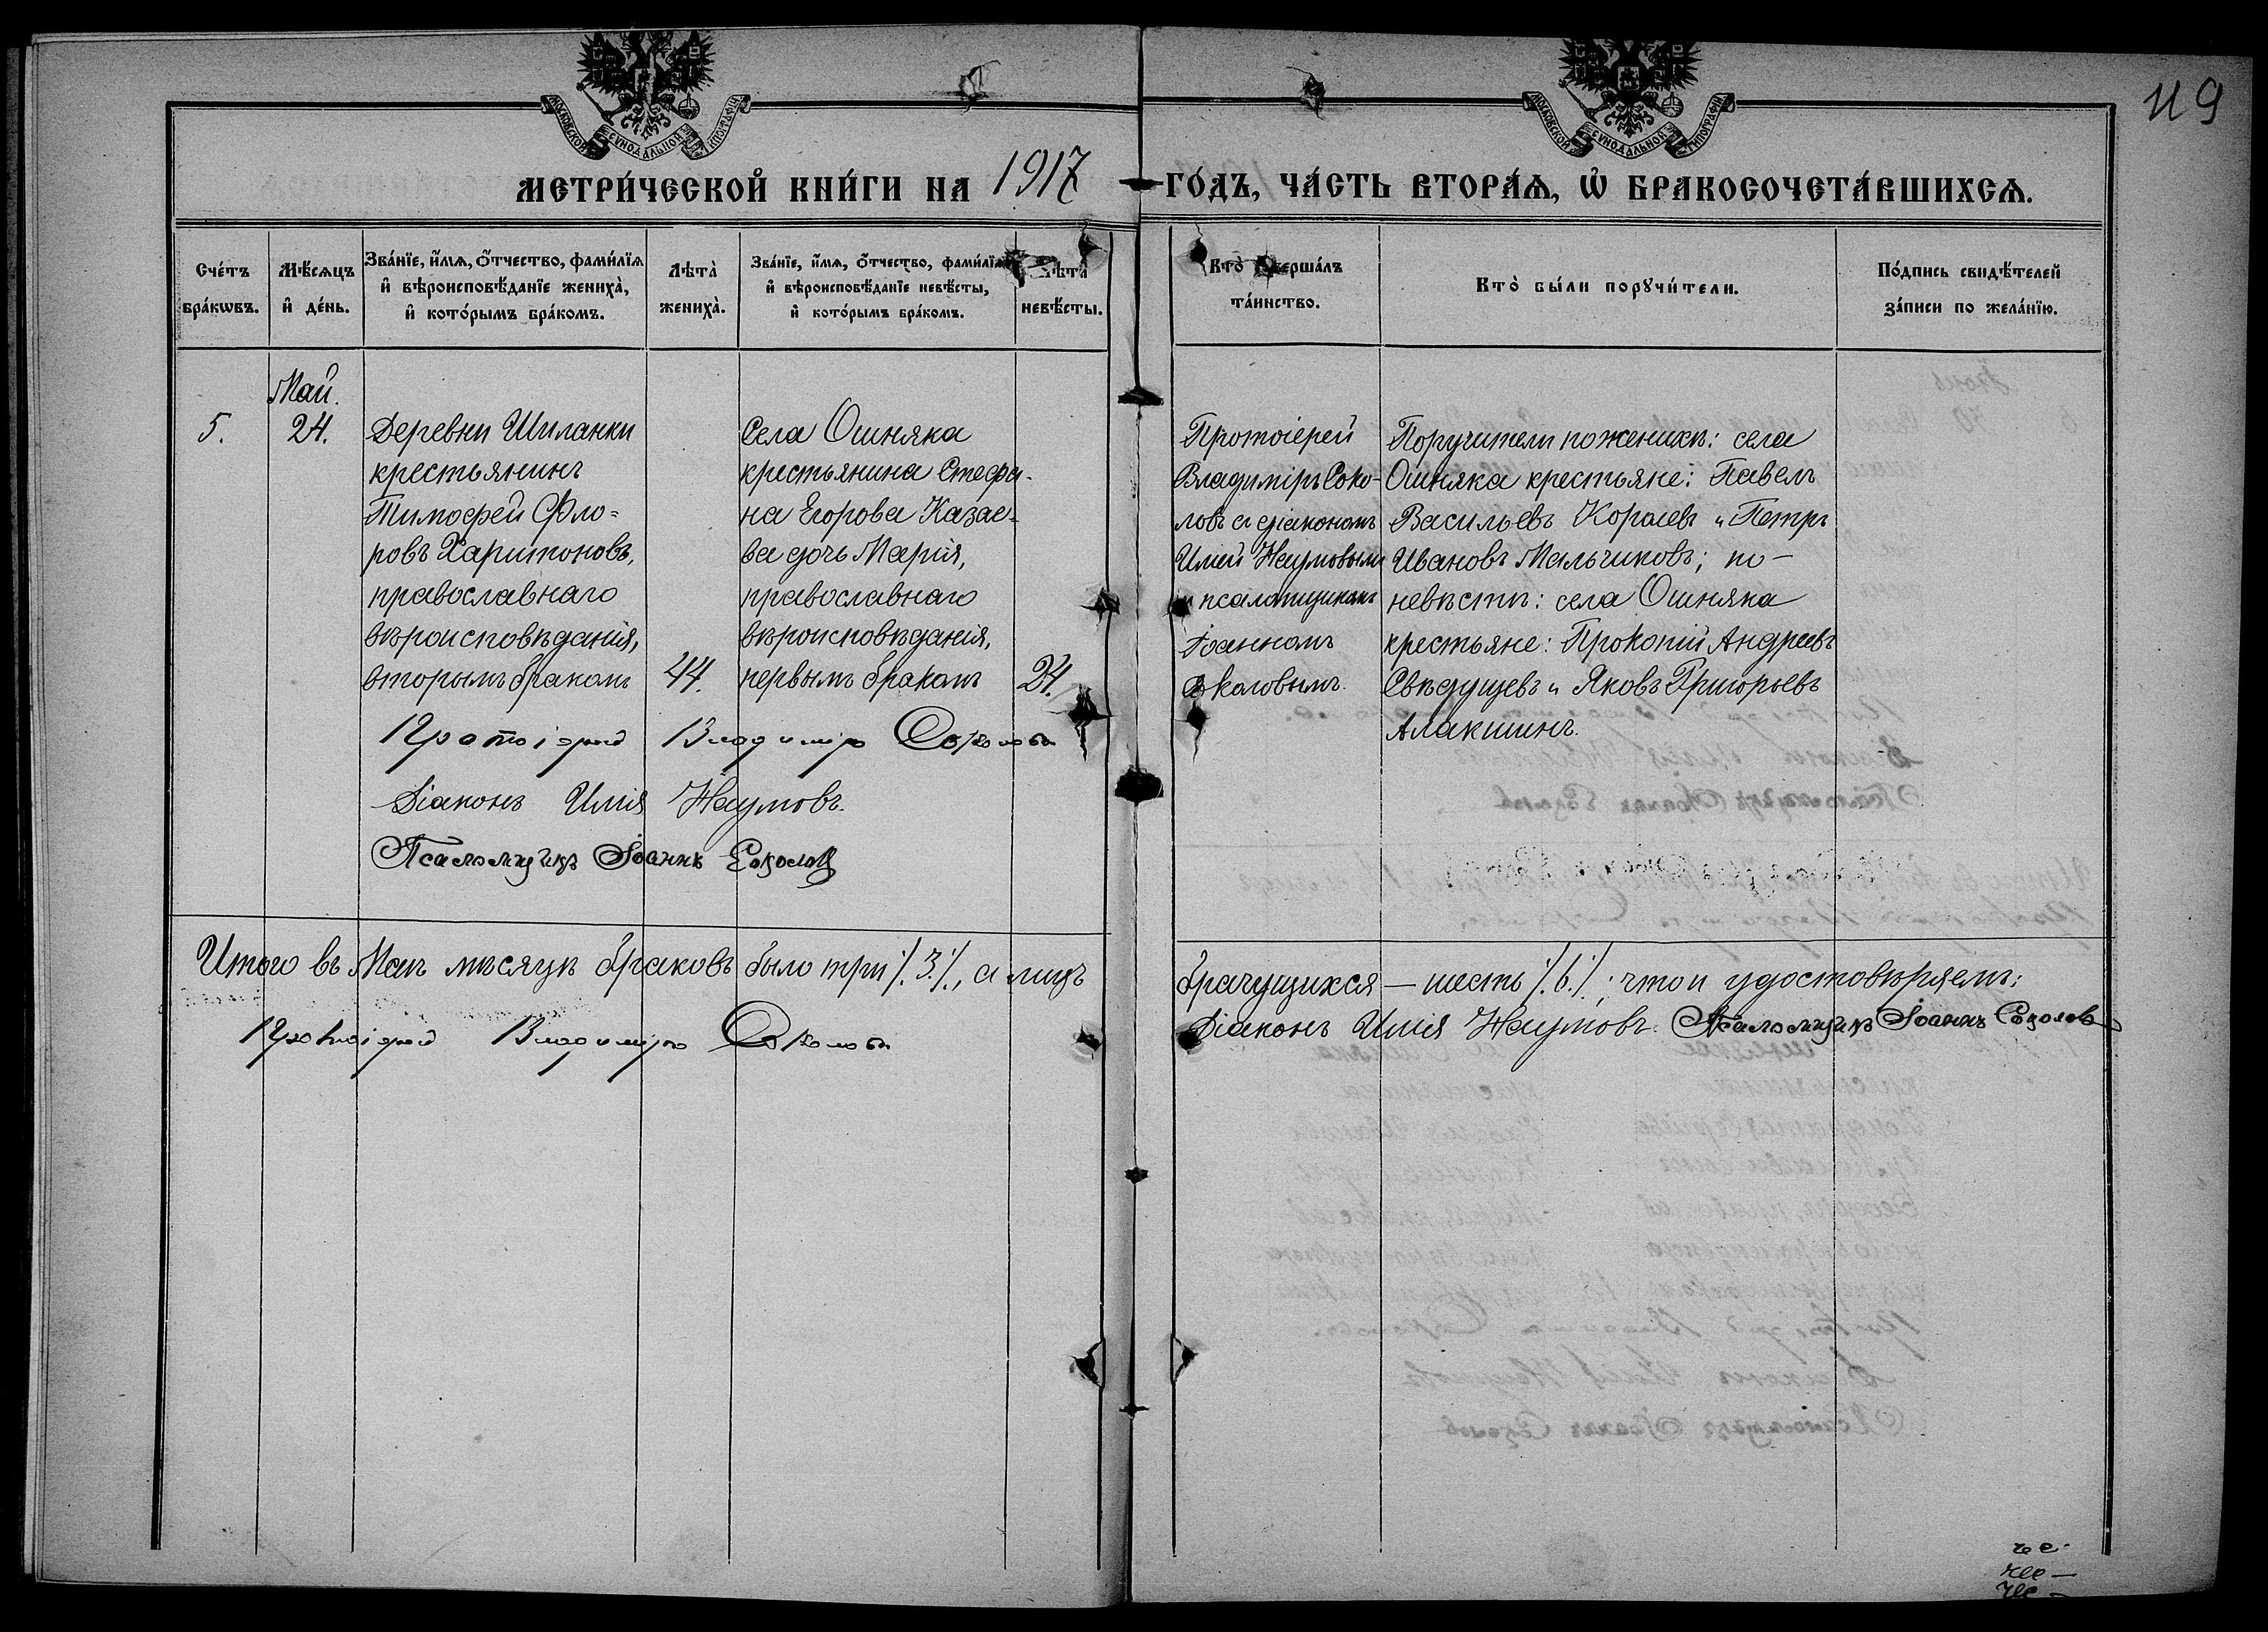 119
МОСКОВСКОЙ СѴНОДАЛЬНОЙ ТИПОГРАФІИ
МОСКОВСКОЙ СѴНОДАЛЬНОЙ ТИПОГРАФІИ
МЕТРИ́ЧЕСКОЙ КНИ́ГИ НА 1917 ГО́ДЪ, ЧА́СТЬ ВТОРА́Ѧ, Ѡ҆ БРАКОСОЧЕТА́ВШИХСѦ.
Сче́тъ бра́кѡвъ.
Мѣ́сяцъ и҆ де́нь.
Зва́нїе, и҆́мѧ, о҆́тчество, фами́лїѧ
и҆ вѣроисповѣ́данїе жениха̀,
и҆ кото́рымъ бра́комъ.
Лѣта̀ жениха̀.
Зва́нїе, и҆́мѧ, о҆́тчество, фами́лїѧ
и҆ вѣроисповѣ́данїе невѣ́сты,
и҆ кото́рымъ бра́комъ.
Лѣта̀ невѣ́сты.
Кто̀ соверша́лъ
та́инство.
Кто̀ бы́ли порꙋчи́тели.
По́дпись свидѣ́телей
за́писи по жела́нїю.
5.
Май.
24.
Деревни Шиланки
крестьянинъ
Тимофей Фло=
ровъ Харитоновъ,
православнаго
вѣроисповѣданія,
вторымъ бракомъ
44.
Села Ошняка
крестьянина Стефа-
на Егорова Казае-
ва дочь Марія,
православнаго
вѣроисповѣданія,
первымъ бракомъ
24.
Протоіерей
Владиміръ Соко-
ловъ съ діакономъ
Иліей Наумовымъ
и псаломщикомъ
Іоанномъ
Соколовымъ.
Поручители по женихѣ: села
Ошняка крестьяне: Павелъ
Васильевъ Королевъ и Петръ
Ивановъ Мальчиковъ; по-
невѣстѣ: села Ошняка
крестьяне: Прокопій Андреевъ
Свѣдущевъ и Яковъ Григорьевъ
Алакшинъ.
Протоіерей Владиміръ Соколовъ
Діаконъ Илія Наумовъ.
Псаломщикъ Іоаннъ Соколовъ
Итого въ Маѣ мѣсяцѣ браковъ было три /.3./, а лицъ
брачущихся — шесть /.6./; что и удостовѣряемъ:
Протоіерей Владиміръ Соколовъ
Діаконъ Илія Наумовъ. Псаломщикъ Іоаннъ Соколовъ